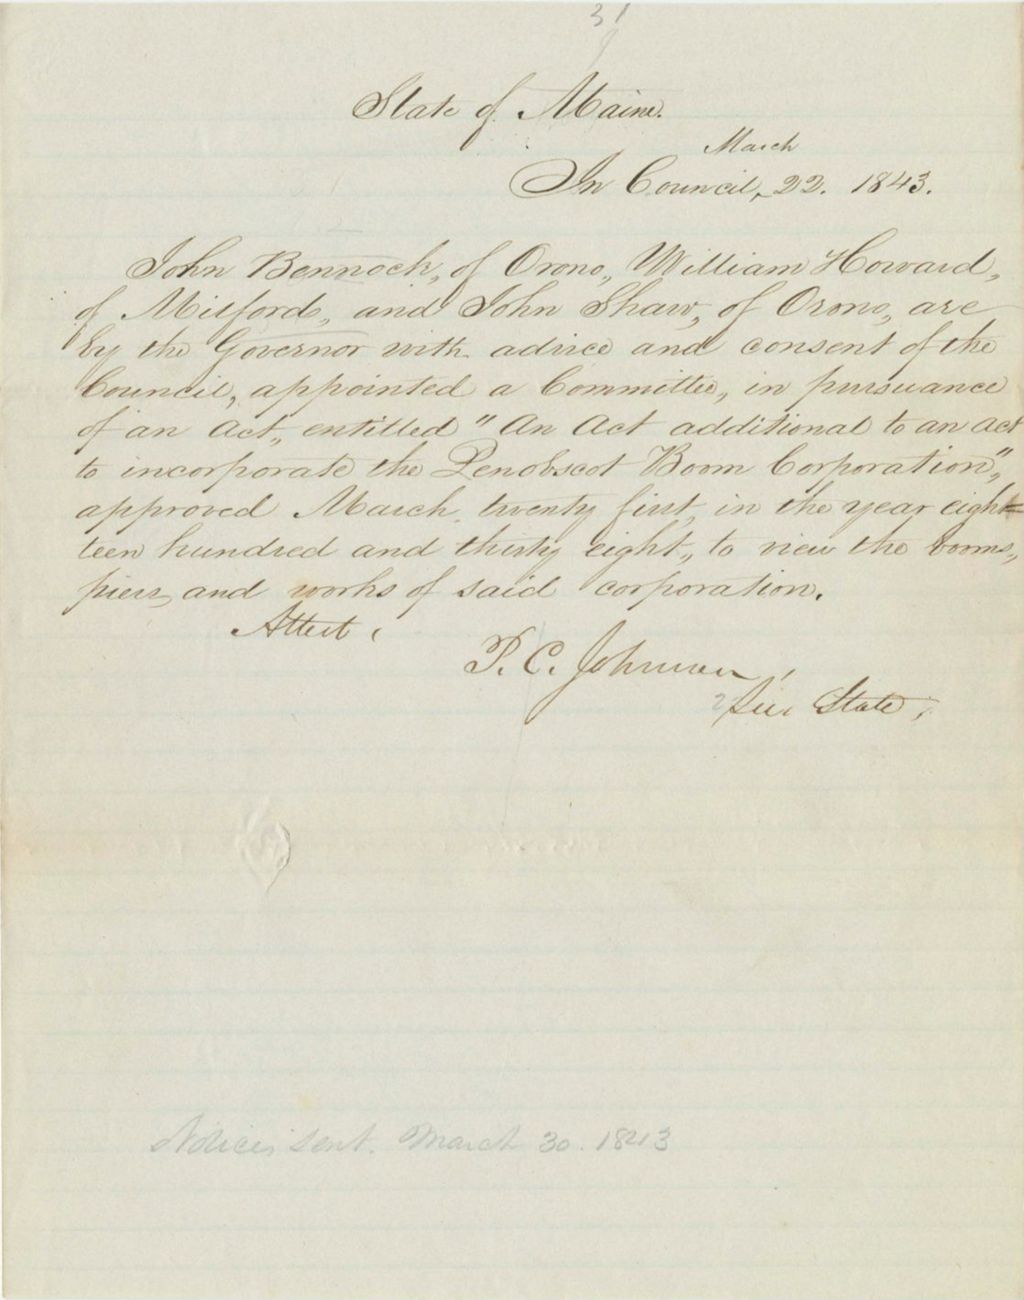 31
State of Maine.
March
In Council, 22. 1843.
John Bennoch, of Orono, William Howard,
of Milford, and John Shaw, of Orono, are
by the Governor with advice and consent of the
Council, appointed a Committee, in pursuance
of an Act, entitled "An Act additional to an act
to incorporate the Penobscot Boom Corporation",
approved March twenty first, in the year eigh=
teen hundred and thirty eight, to view the booms,
piers, and works of said corporation.
Attest,
P. C. Johnson,
Sec. State,
Notices sent. March 30. 1843